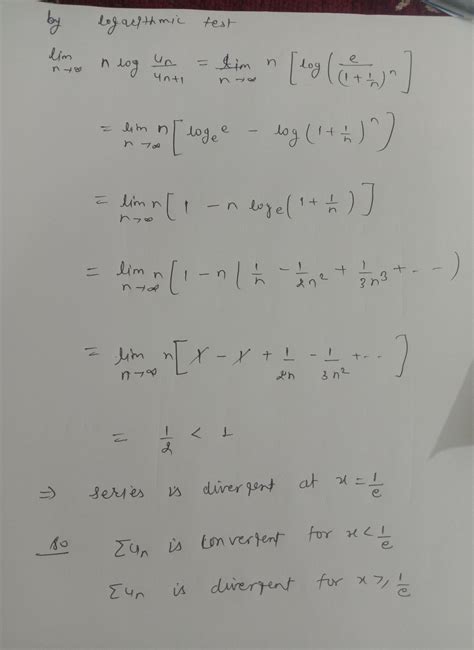 by logarithmic test
lim n→∞ n log u_n/u_{n+1} = lim n→∞ n [log(e/(1+1/n)^n)]
= lim n→∞ n[log_e e - log(1+1/n)^n)]
= lim n→∞ n[1 - n log_e(1+1/n)]
= lim n→∞ n[1 - n(1/n - 1/2n² + 1/3n³ + - - -)
= lim n→∞ n[1 - 1 + 1/2n - 1/3n² + - - ]
= 1/2 < 1
⇒ series is divergent at x = 1/e
so Σu_n is convergent for x < 1/e
Σu_n is divergent for x ≥ 1/e